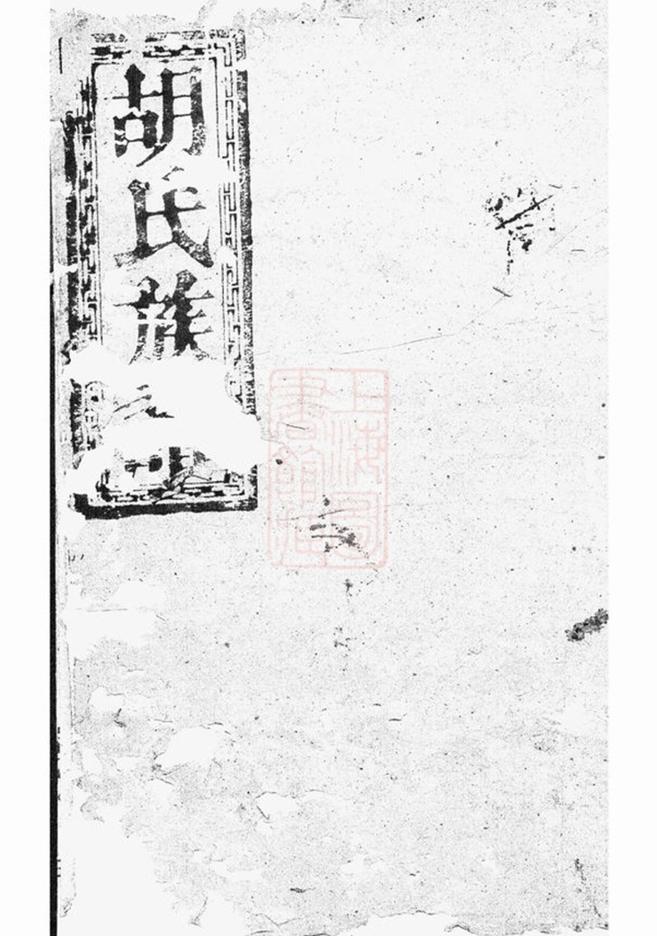 胡氏族
上海圖
書館藏